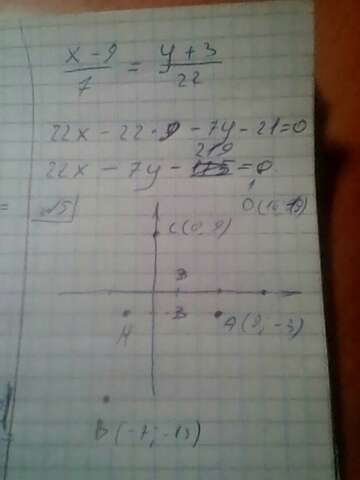 x - 9 / 7 = y + 3 / 22
22x - 22·9 - 7y - 21 = 0
219
22x - 7y - 175 = 0
№5
C(0, 9)
3
-3
A(9, -3)
B(-7, -13)